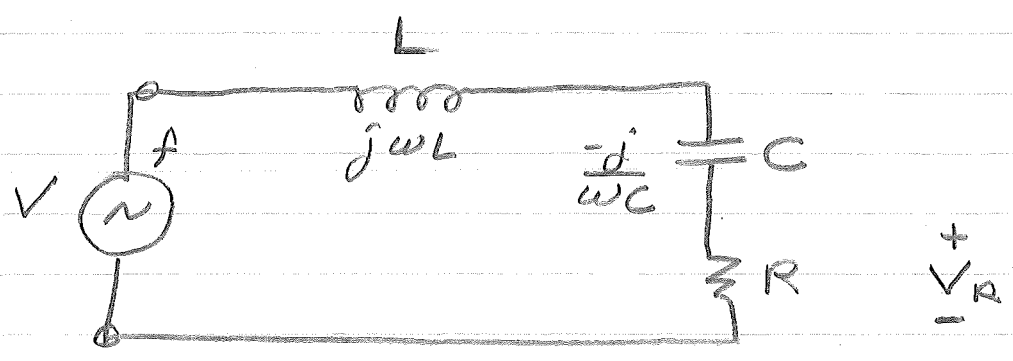 L
f
jωL
-j
ωC
C
V
~
R
+
VR
-